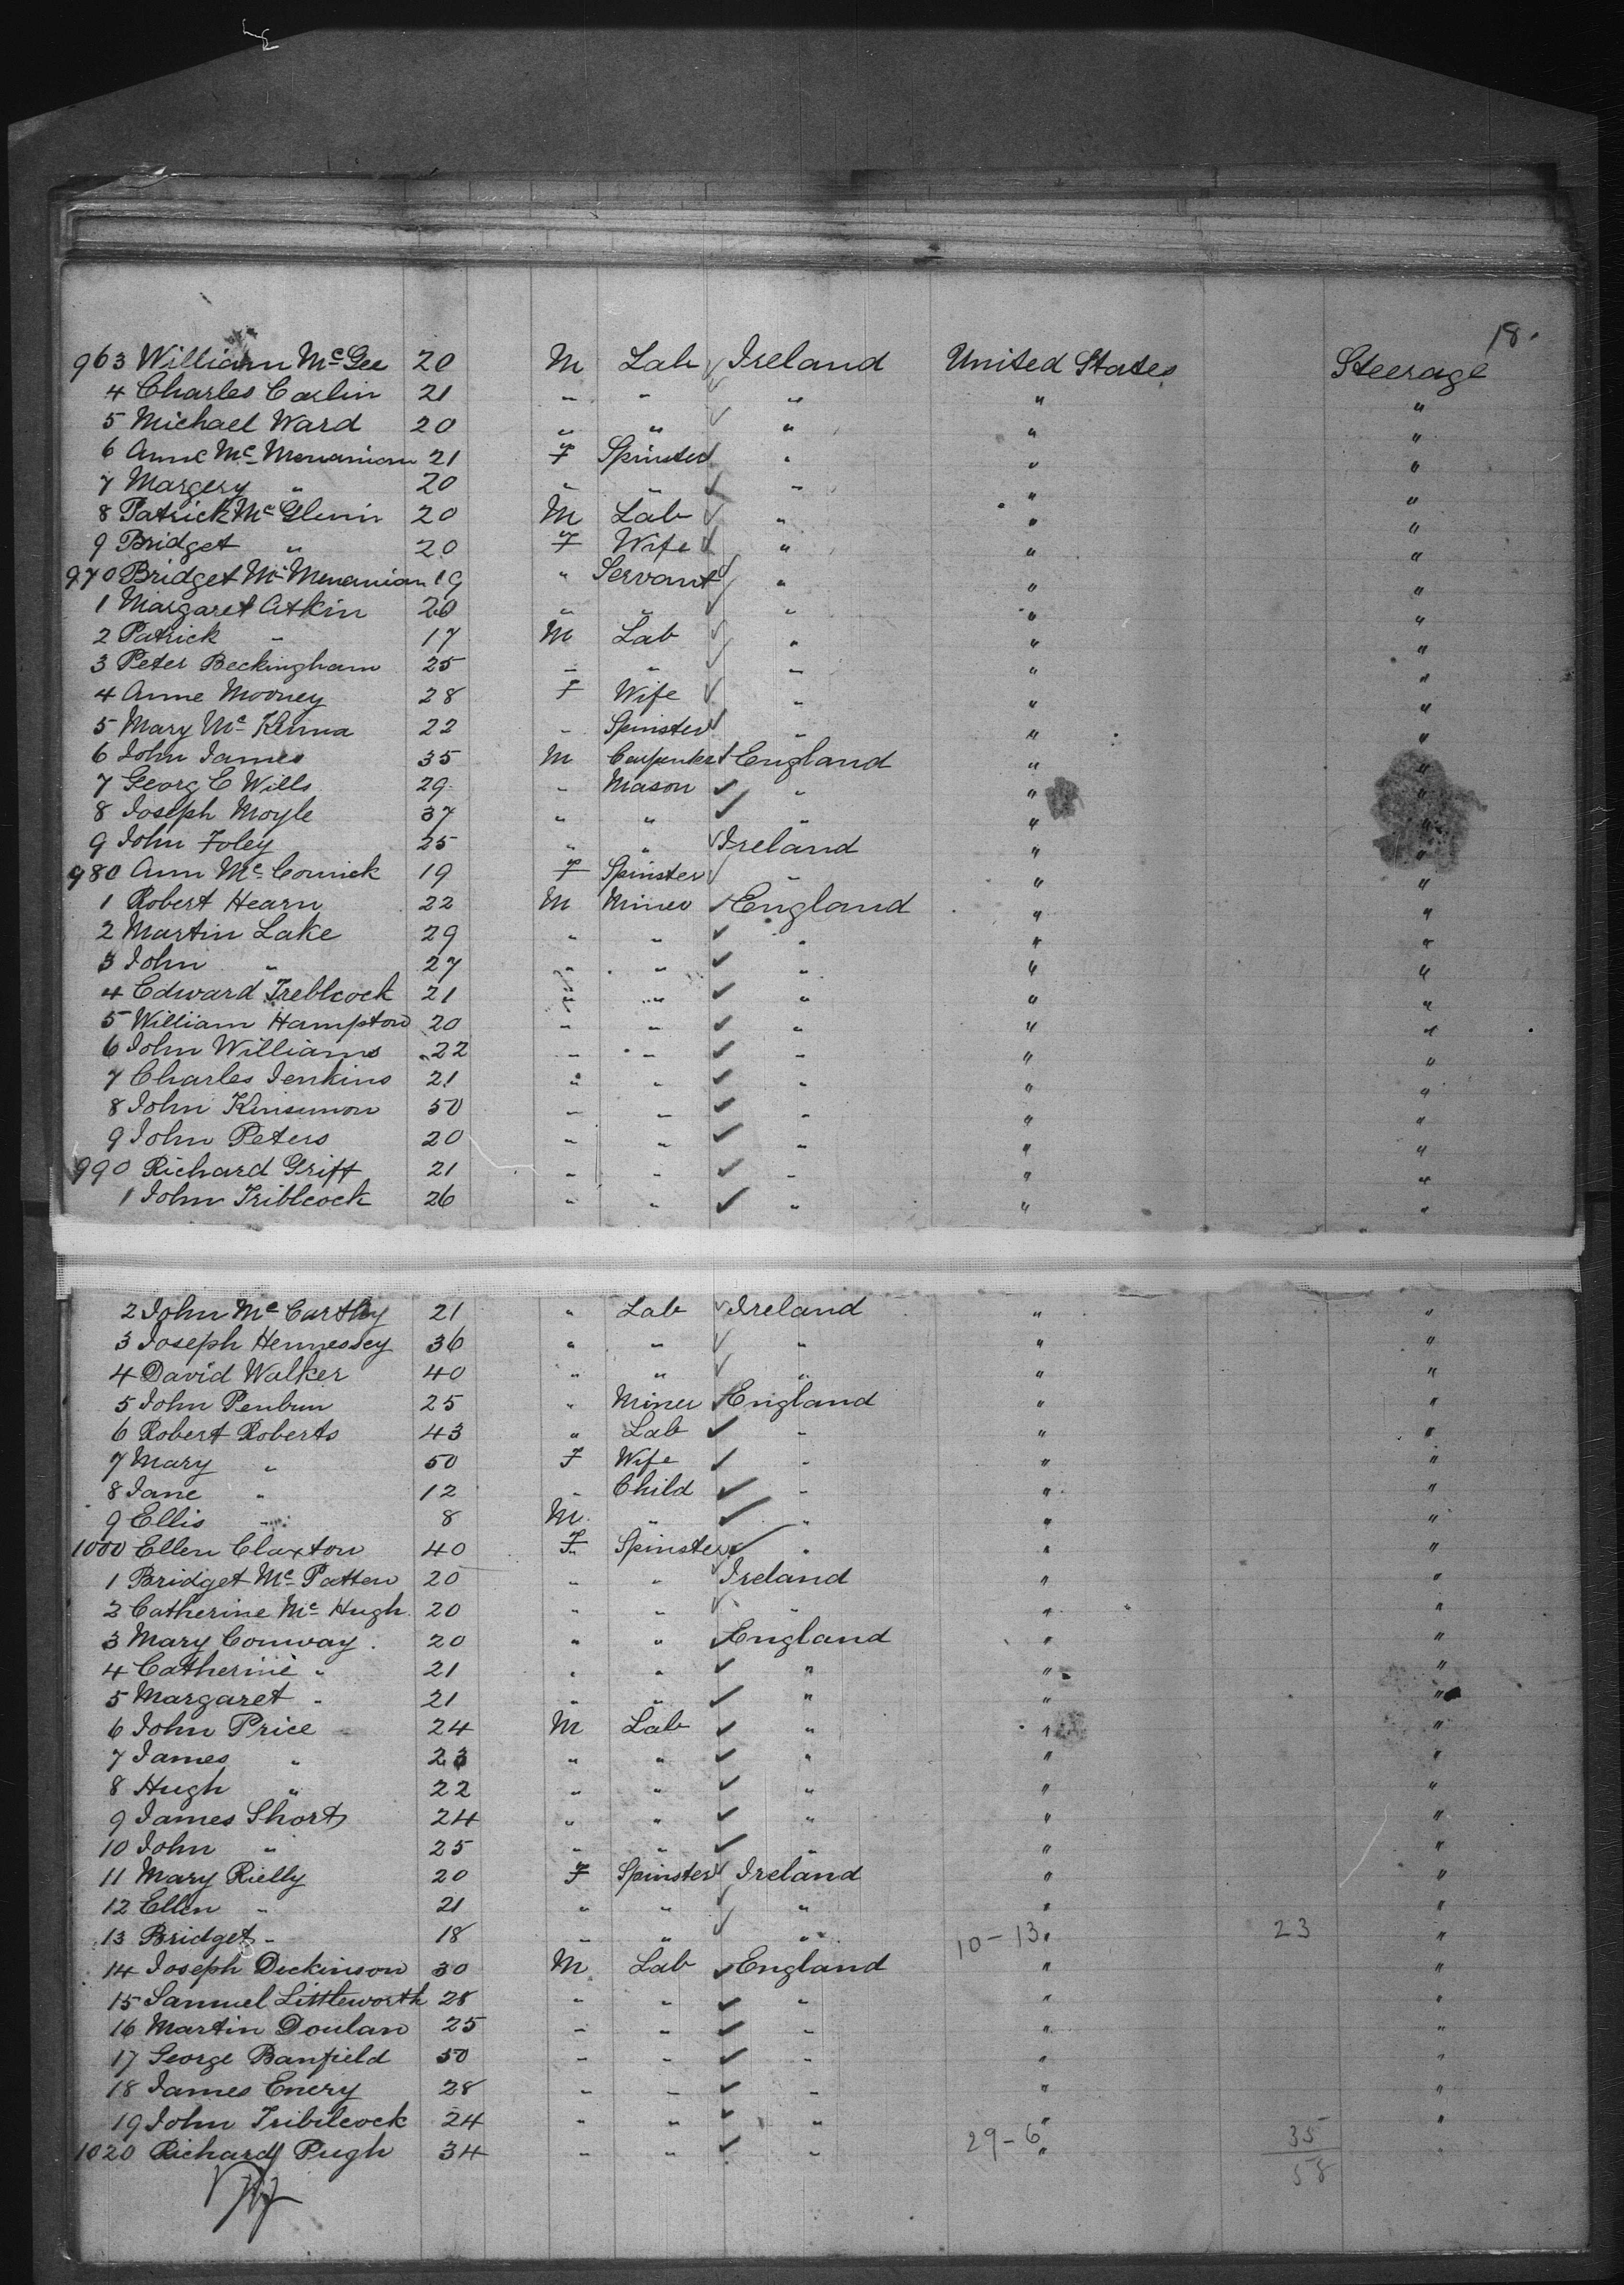 18.
963 William Mc Gee 20 M Lab Ireland United States Steerage
4 Charles Carlin 21 " " " " "
5 Michael Ward 20 " " " " "
6 Anne Mc Menaniom 21 F Spinster " " "
7 Margery " 20 " " " " "
8 Patrick Mc Glenin 20 M Lab " " "
9 Bridget " 20 F Wife " " "
970 Bridget Mc Menanian 19 " Servant " " "
1 Margaret Atkin 20 " " " " "
2 Patrick " 17 M Lab " " "
3 Peter Beckingham 25 " " " " "
4 Anne Mooney 28 F Wife " " "
5 Mary Mc Kenna 22 " Spinster " " "
6 John James 35 M Carpenter England " "
7 Georg E Wills 29 " Mason " " "
8 Joseph Moyle 37 " " " " "
9 John Foley 25 " " Ireland " "
980 Ann Mc Cornick 19 F Spinster " " "
1 Robert Hearn 22 M Miner England " "
2 Martin Lake 29 " " " " "
3 John " 27 " " " " "
4 Edward Treblcock 21 " " " " "
5 William Hampton 20 " " " " "
6 John Williams 22 " " " " "
7 Charles Jenkins 21 " " " " "
8 John Kinsumon 50 " " " " "
9 John Peters 20 " " " " "
990 Richard Grift 21 " " " " "
1 John Triblcock 26 " " " " "
2 John Mc Carthy 21 " Lab Ireland " "
3 Joseph Hennessey 36 " " " " "
4 David Walker 40 " " " " "
5 John Penbun 25 " Miner England " "
6 Robert Roberts 43 " Lab " " "
7 Mary " 50 F Wife " " "
8 Jane " 12 " Child " " "
9 Ellis " 8 M " " " "
1000 Ellen Claxton 40 F Spinster " " "
1 Bridget Mc Patten 20 " " Ireland " "
2 Catherine Mc Hugh 20 " " " " "
3 Mary Conway 20 " " England " "
4 Catherine " 21 " " " " "
5 Margaret " 21 " " " " "
6 John Price 24 M Lab " " "
7 James " 23 " " " " "
8 Hugh " 22 " " " " "
9 James Short 24 " " " " "
10 John " 25 " " " " "
11 Mary Rielly 20 F Spinster Ireland " "
12 Ellen " 21 " " " " "
13 Bridget " 18 " " " 10-13 " 23 "
14 Joseph Dickinson 30 M Lab England " "
15 Samuel Littleworth 28 " " " " "
16 Martin Doulan 25 " " " " "
17 George Banfield 50 " " " " "
18 James Enery 28 " " " " "
19 John Tribilcock 24 " " " " "
1020 Richard Pugh 34 " " " 29-6 " 35 "
58